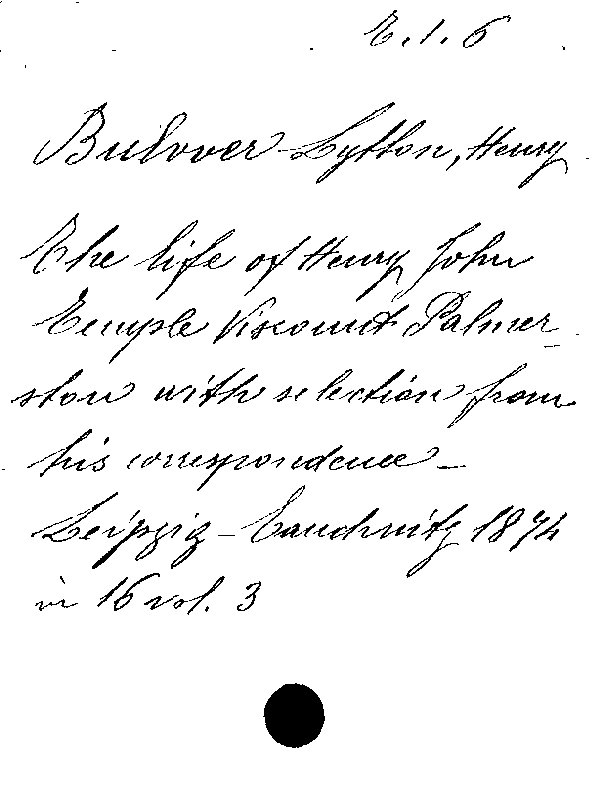 E.1.6
Bulwer-Lytton, Henry
The life of Henry John
Temple Viscount Palmer-
ston with selection from
his correspondence -
Leipzig - Tauchnitz 1874
in 16 vol. 3